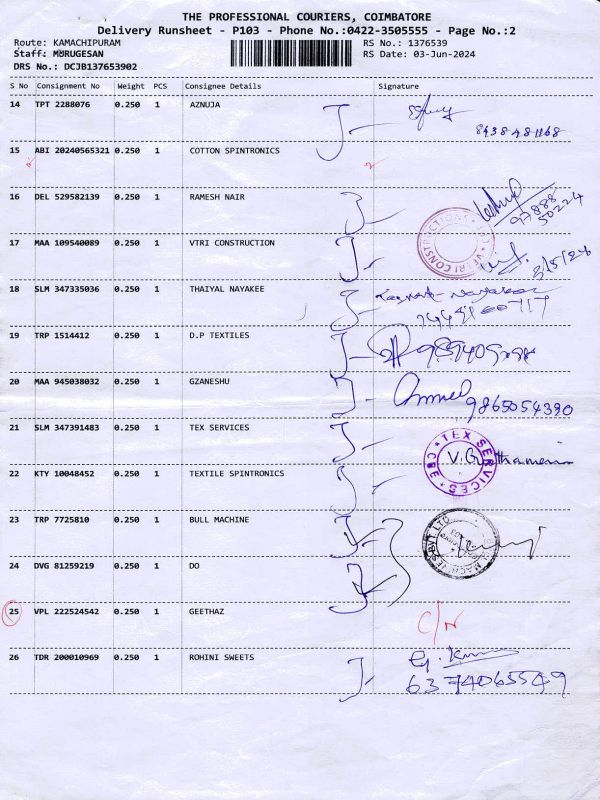 THE PROFESSIONAL COURIERS, COIMBATORE
Delivery Runsheet - P103 - Phone No.:0422-3505555 - Page No.:2
Route: KAMACHIPURAM RS No.: 1376539
Staff: MURUGESAN RS Date: 03-Jun-2024
DRS No.: DCJB137653902
S No Consignment No Weight PCS Consignee Details Signature
14 TPT 2288076 0.250 1 AZNUJA
8438481168
15 ABI 20240565321 0.250 1 COTTON SPINTRONICS
16 DEL 529582139 0.250 1 RAMESH NAIR
97888
50224
17 MAA 109540089 0.250 1 VTRI CONSTRUCTION
18 SLM 347335036 0.250 1 THAIYAL NAYAKEE
19 TRP 1514412 0.250 1 D.P TEXTILES
20 MAA 945038032 0.250 1 GZANESHU
9865054390
21 SLM 347391483 0.250 1 TEX SERVICES
TEX SERVICES
CBE
22 KTY 10048452 0.250 1 TEXTILE SPINTRONICS
23 TRP 7725810 0.250 1 BULL MACHINE
24 DVG 81259219 0.250 1 DO
25 VPL 222524542 0.250 1 GEETHAZ
C/N
26 TDR 200010969 0.250 1 ROHINI SWEETS
6374065549